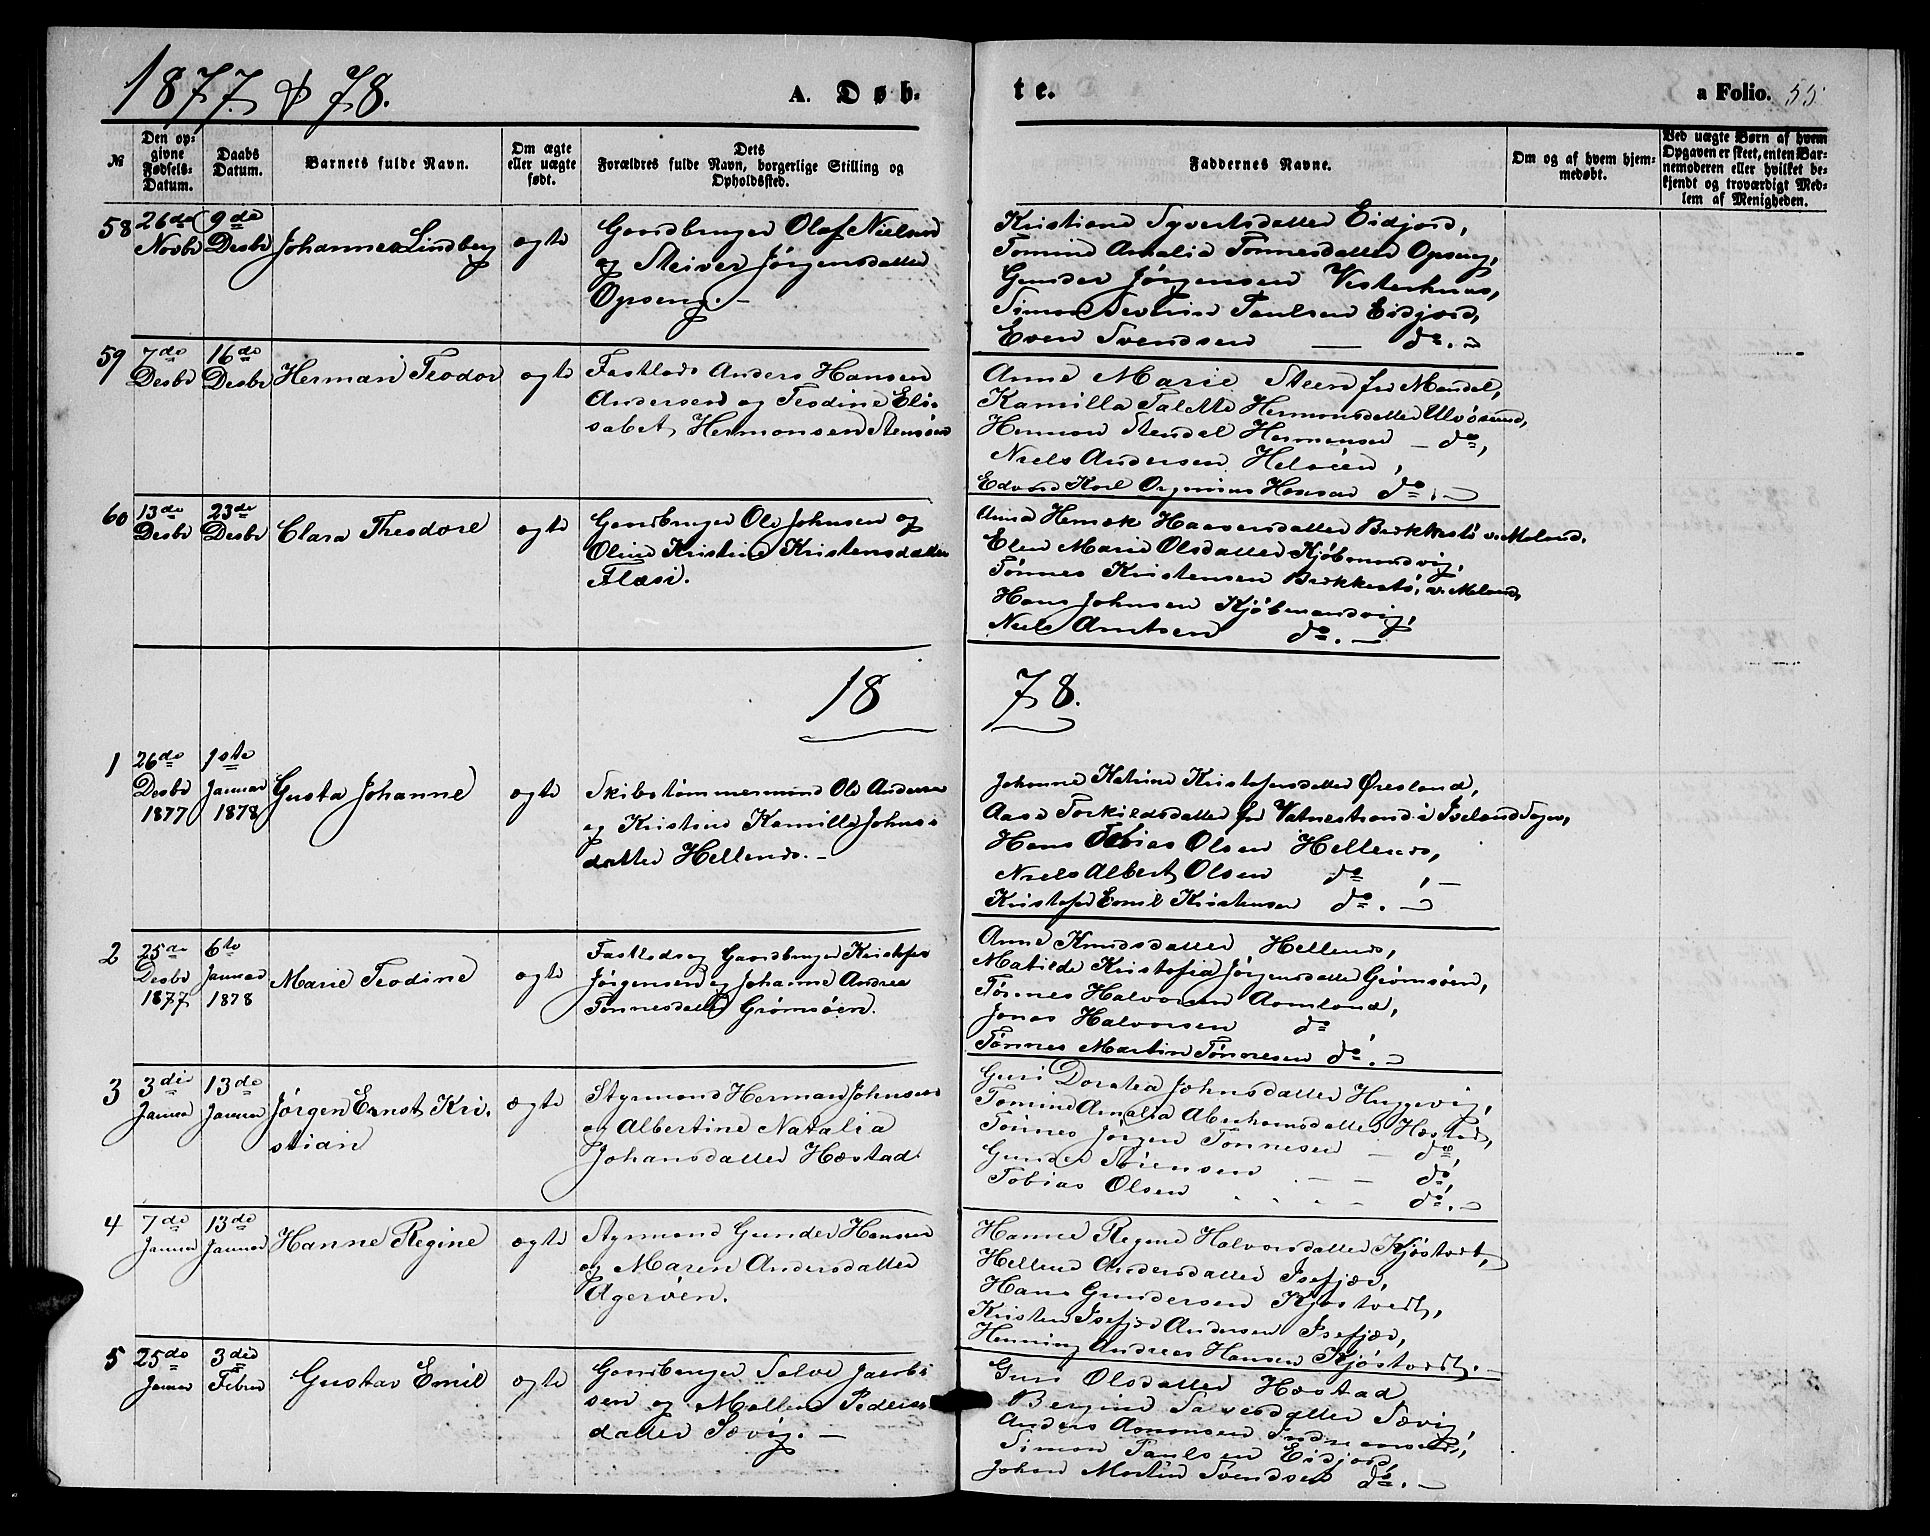 1877 & 78.
A. Døb-
te.
a Folio. 55
№
Den opgivne Fødsels-Datum.
Daabs Datum.
Barnets fulde Navn.
Om ægte eller uægte født.
Dets Forældres fulde Navn, borgerlige Stilling og Opholdssted.
Faddernes Navne.
Om og af hvem hjemmedøbt.
Ved uægte Børn af hvem Opgaven er skeet, enten Barnemoderen eller hvilket bekjendt og troværdigt Medlem af Menigheden.
58 26de Novbr 9de Desbr Johannes Lindberg ægte
Gaardbruger Olaf Nielsen
og Steiver Jørgensdatter
Opseng.-
Kristiane Syvertsdatter Eidjord,
Tomine Amalia Tønnesdatter Opseng,
Gunder Jørgensen Vesterhus,
Simon Severin Paulsen Eidjord,
Even Svendsen — do.-
59 7de Desbr 16de Desbr Herman Teodor ægte
Fastlods Anders Hansen
Andersen og Teodine Eli-
sabet Hermansen Stensøen
Anne Marie Steen fra Mandal,
Kamilla Talette Hermansdatter Ulvøsund,
Herman Stendel Hermansen - do,
Niels Andersen Helvien,
Edvard Karl Hansen do.-
60 13de Desbr 23de Desbr Clara Theodore ægte
Gaardbruger Ole Johnsen og
Oline Kristine Kristensdatter
Flæsi.
Anna Haaversdatter Brekkestø v. Moland.
Elen Marie Olsdatter Kjøbmandsvig,
Tønnes Kristensen Brekkestø, v. Moland,
Hans Johnsen Kjøbmandsvig,
Niels Arntsen do.-
18 78.
1 26de Desbr 1877 1ste Januar 1878 Gusta Johanne ægte
Skibstømmermand Ole Andersen
og Kristine Kamilla Johns-
datter Hellends.-
Johanne Katrine Kristofersdatter Øresland,
Aase Torkildsdatter fra Vatnestrand i Iveland Sogn,
Hans Tobias Olsen Hellends,
Niels Albert Olsen do,-
Kristofer Emil Kristensen do.-
2 25de Desbr 1877 6te Januar 1878 Marie Teodine ægte
Fastlods og Gaardbruger Kristofer
Jørgensen og Johanne Andrea
Tønnesdatter Grømsøen.
Anne Knudsdatter Hellends,
Matilde Kristofia Jørgensdatter Grømsøen,
Tønnes Halvorsen Aamland,
Jonas Halvorsen do,
Tønnes Martin Tønnesen do.-
3 3die Januar 13de Januar Jørgen Ernst Kri-
stian ægte
Styrmand Herman Johnsen
og Albertine Natalia
Johansdatter Hæstad.
Guri Dorthea Johnsdatter Huggevig,
Tomine Amalia Abrahamsdatter Hæstad,
Tønnes Jørgen Tønnesen - do,
Gunder Sørensen - - do,
Tobias Olsen do.-
4 7de Januar 13de Januar Hanne Regine ægte
Styrmand Gunder Hansen
og Maren Andersdatter
Agerøen.
Hanne Regine Halvorsdatter Kjøstvedt,
Hellene Andersdatter Isefjær,
Hans Gundersen Kjøstvedt,
Kristen Isefjær Andersen Isefjær,
Henning Andreas Hansen Kjøstvedt.-
5 25de Januar 3die Februar Gustav Emil ægte
Gaardbruger Salve Jacob-
sen og Mallene Peders-
datter Sævig.-
Guri Olsdatter Hæstad
Bergine Salvesdatter Sævig
Anders Aanonsen
Simon Paulsen Eidjord,
Johan Martin Svendsen do.-